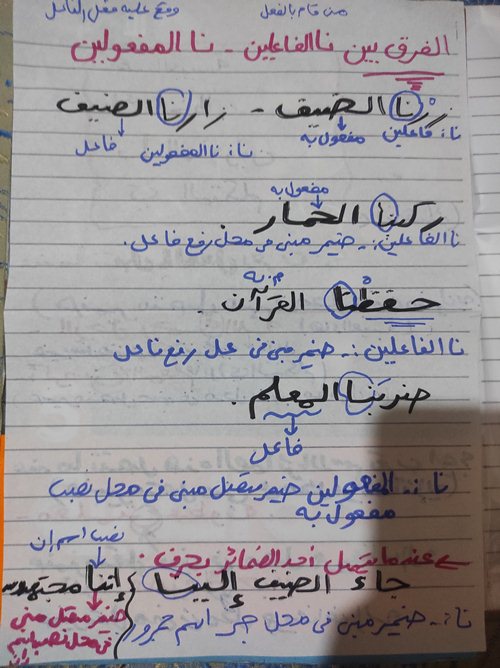 من قام بالفعل وقع عليه فعل الفاعل
الفرق بين نا الفاعلين - نا المفعولين
زرنا الضيف - زارنا الضيف
نا: فاعلين مفعول به نا: نا المفعولين فاعل
مفعول به
ركبنا الحمار.
نا الفاعلين:- ضمير مبنى فى محل رفع فاعل.
م. به
حفظنا القرآن.
نا الفاعلين:- ضمير مبنى فى محل رفع فاعل
ضربنا المعلم.
فاعل
نا:- المفعولين ضمير متصل مبنى فى محل نصب
مفعول به
عندما يتصل أحد الضمائر بحرف.
نصب اسم إن
جاء الضيف إلينا إننا مجتهدون
نا:- ضمير مبنى فى محل جر اسم مجرور
ضمير متصل مبنى
فى محل نصب اسم
إن